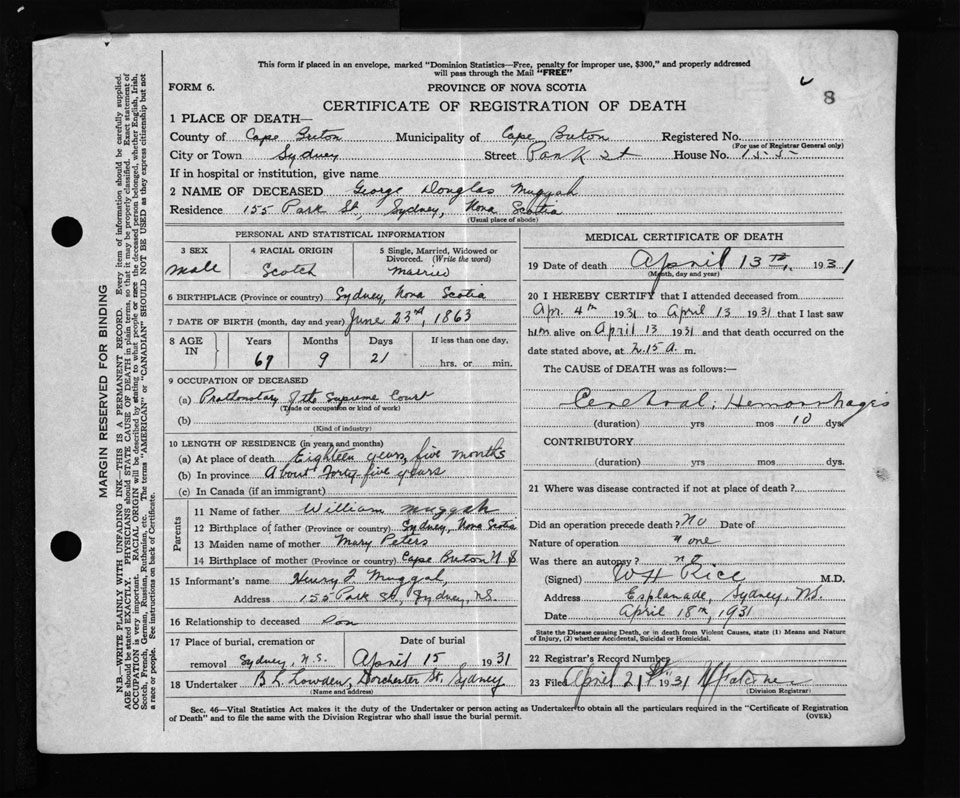 This form if placed in an envelope, marked "Dominion Statistics—Free, penalty for improper use, $300," and properly addressed
will pass through the Mail "FREE"
FORM 6.
PROVINCE OF NOVA SCOTIA
8
CERTIFICATE OF REGISTRATION OF DEATH
1 PLACE OF DEATH—
County of Cape Breton Municipality of Cape Breton Registered No.
(For use of Registrar General only)
City or Town Sydney Street Park St House No. 155
If in hospital or institution, give name
2 NAME OF DECEASED George Douglas Muggah
Residence 155 Park St, Sydney, Nova Scotia
(Usual place of abode)
PERSONAL AND STATISTICAL INFORMATION
3 SEX 4 RACIAL ORIGIN 5 Single, Married, Widowed or
Divorced. (Write the word)
Male Scotch Married
6 BIRTHPLACE (Province or country) Sydney, Nova Scotia
7 DATE OF BIRTH (month, day and year) June 23rd, 1863
8 AGE IN Years Months Days If less than one day,
67 9 21 hrs. or min.
9 OCCUPATION OF DECEASED
(a) Prothonotary of the Supreme Court
(Trade or occupation or kind of work)
(b)
(Kind of industry)
10 LENGTH OF RESIDENCE (in years and months)
(a) At place of death Eighteen years, five months
(b) In province About Forty five years
(c) In Canada (if an immigrant)
Parents
11 Name of father William Muggah
12 Birthplace of father (Province or country) Sydney, Nova Scotia
13 Maiden name of mother Mary Peters
14 Birthplace of mother (Province or country) Cape Breton N S
15 Informant's name Henry F Muggah,
Address 155 Park St, Sydney, N.S.
16 Relationship to deceased Son
17 Place of burial, cremation or Date of burial
removal Sydney, N.S. April 15 1931
18 Undertaker B L Lowden, Dorchester St. Sydney
(Name and address)
MEDICAL CERTIFICATE OF DEATH
19 Date of death April 13th, 1931
(Month, day and year)
20 I HEREBY CERTIFY that I attended deceased from
Apr. 4th 1931 to April 13 1931 that I last saw
him alive on April 13 1931 and that death occurred on
date stated above, at 2.15 a. m.
The CAUSE of DEATH was as follows:—
Cerebral Hemorrhages
(duration) yrs mos 10 dys.
CONTRIBUTORY
(duration) yrs. mos. dys.
21 Where was disease contracted if not at place of death?
Did an operation precede death? No Date of
Nature of operation None
Was there an autopsy? no
(Signed) W H Rice M.D.
Address Esplanade, Sydney, N.S.
Date April 18th, 1931
State the Disease causing Death, or in death from Violent Causes, state (1) Means and Nature
of Injury, (2) whether Accidental, Suicidal or Homicidal.
22 Registrar's Record Number
23 Filed April 21st 1931
(Division Registrar)
Sec. 46—Vital Statistics Act makes it the duty of the Undertaker or person acting as Undertaker to obtain all the particulars required in the "Certificate of Registration
of Death" and to file the same with the Division Registrar who shall issue the burial permit.
(OVER)
MARGIN RESERVED FOR BINDING
N.B.—WRITE PLAINLY WITH UNFADING INK—THIS IS A PERMANENT RECORD. Every item of information should be carefully supplied.
AGE should be stated EXACTLY. PHYSICIANS should STATE CAUSE OF DEATH in plain terms, so that it may be properly classified. Exact statement of
OCCUPATION is very important. RACIAL ORIGIN will be described by stating to what people or race the deceased person belonged, whether English, Irish,
Scotch, French, German, Russian, Ruthenian, etc. The terms "AMERICAN" or "CANADIAN" SHOULD NOT BE USED as they express citizenship but not
a race or people. See instructions on back of Certificate.